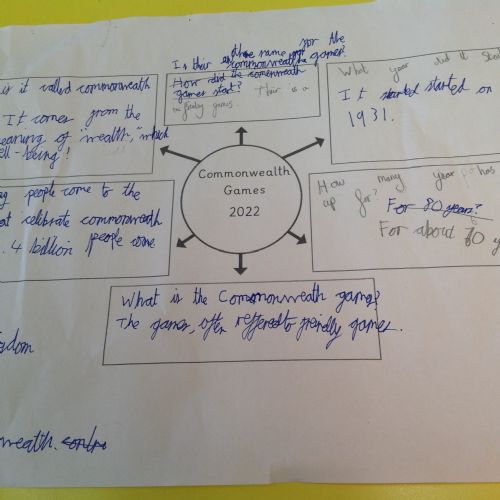 Is their other name for the
commonwealth games?
How did the commonwealth
games start? Their is a
What year did it start
It started started on
1931.
is it called commonwealth
It comes from the
meaning of "wealth," which
well-being!
Commonwealth
Games
2022
people come to the
celebrate commonwealth
4 billion people come
How many year has
up for? For 80 years?
For about 80 y
What is the Commonweath games?
The games, often reffered to friendly games.